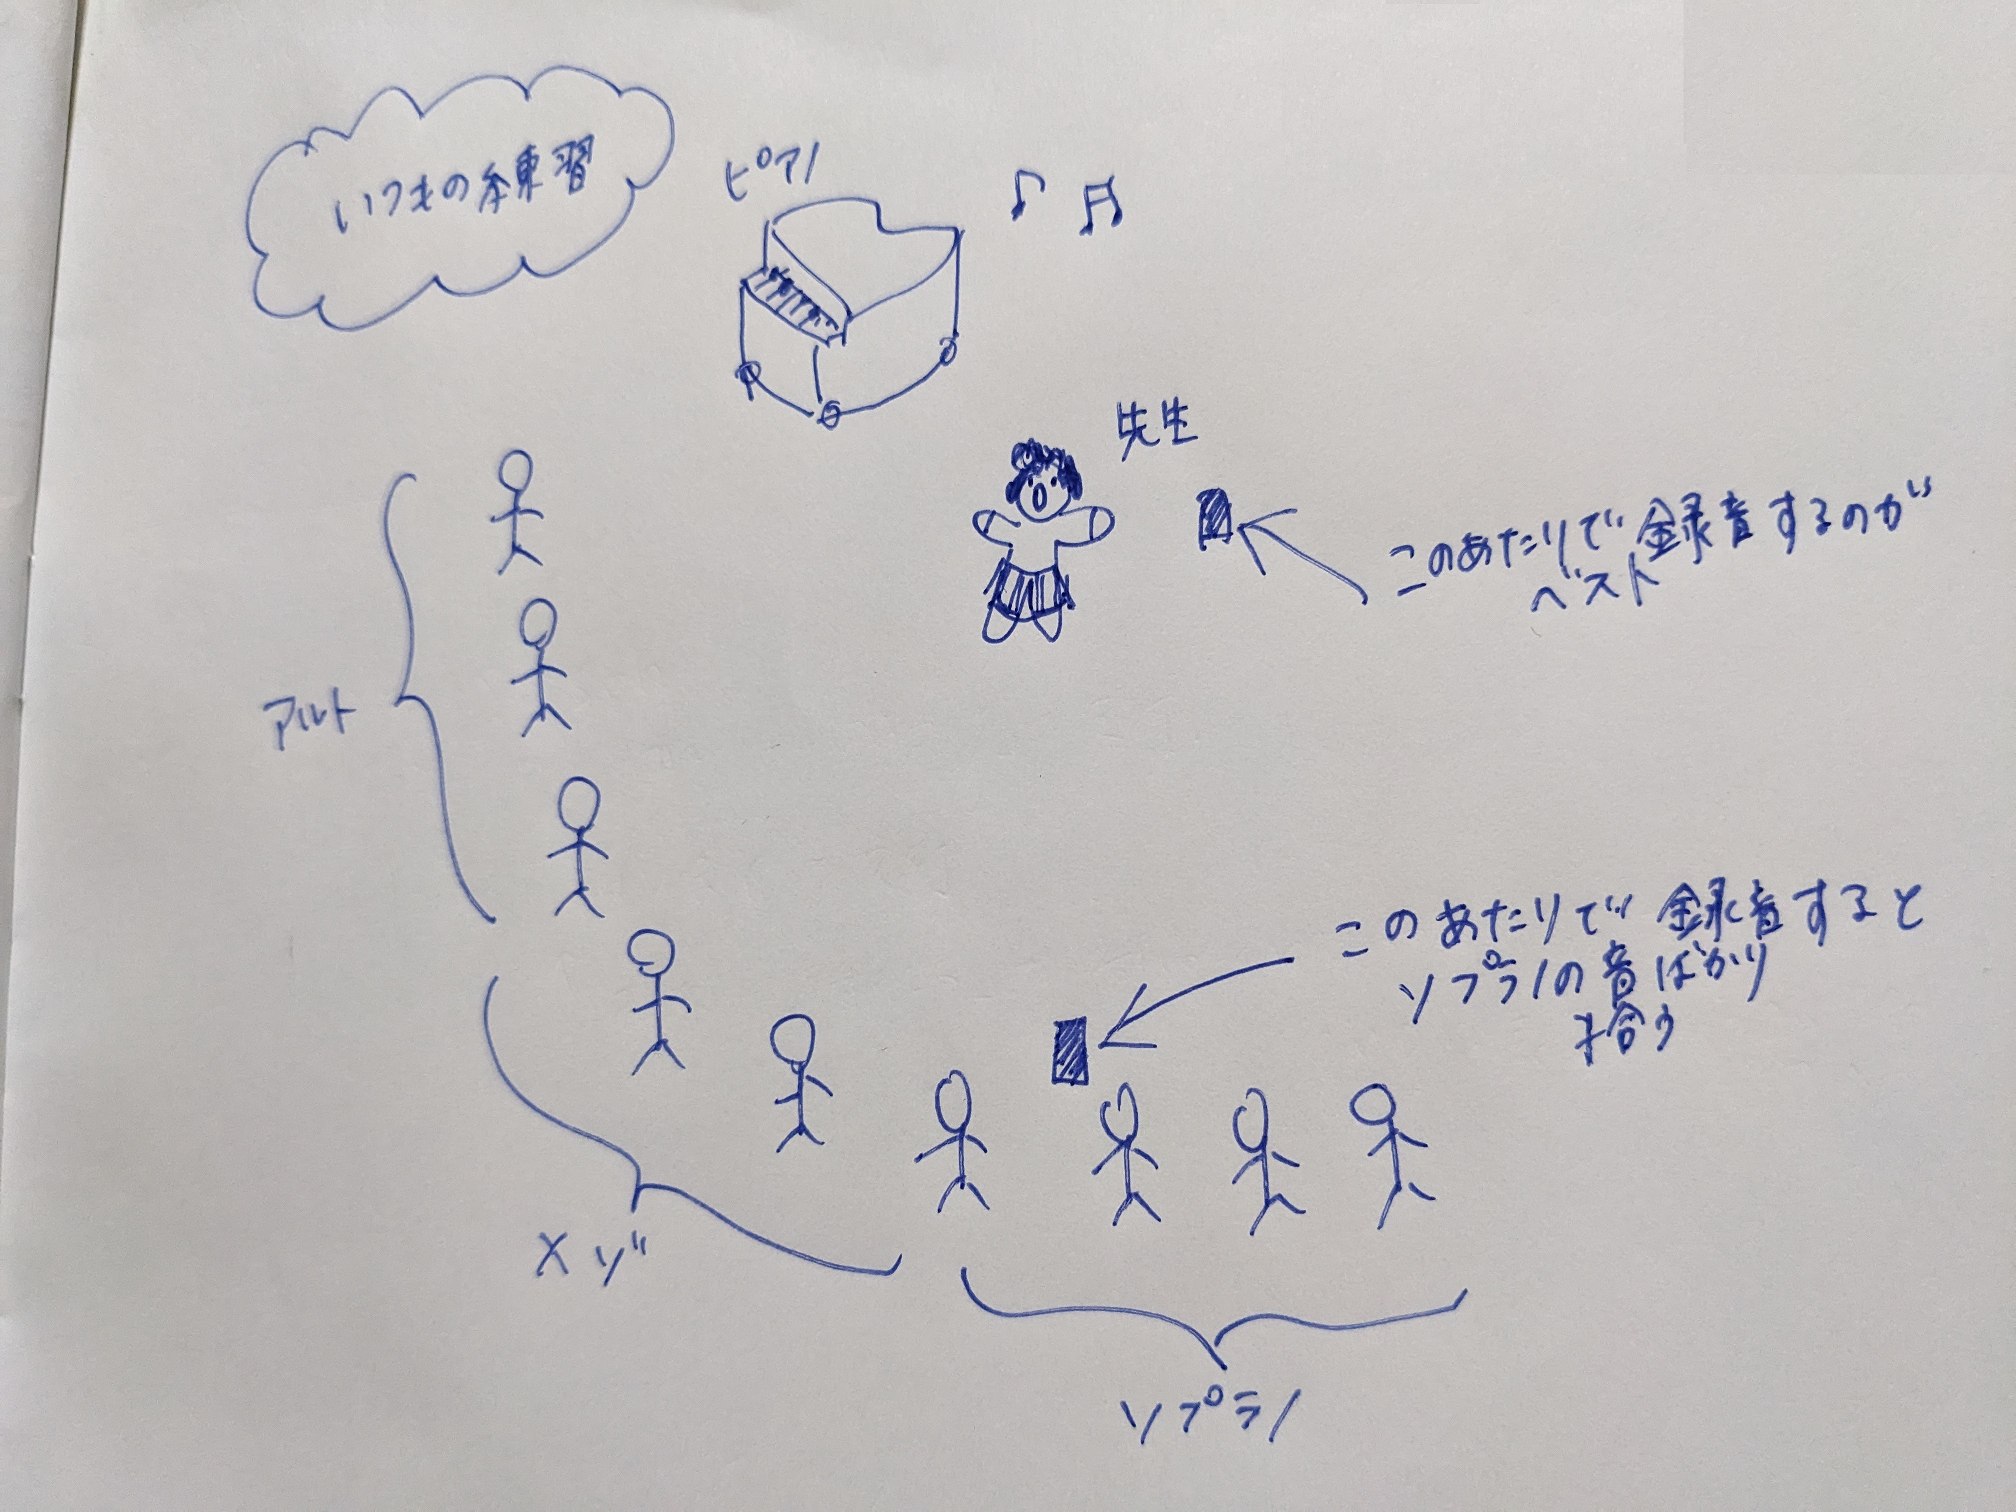 いつもの練習
ピアノ
先生
このあたりで録音するのが
ベスト
アルト
このあたりで録音すると
ソプラノの音ばかり
拾う
メゾ
ソプラノ